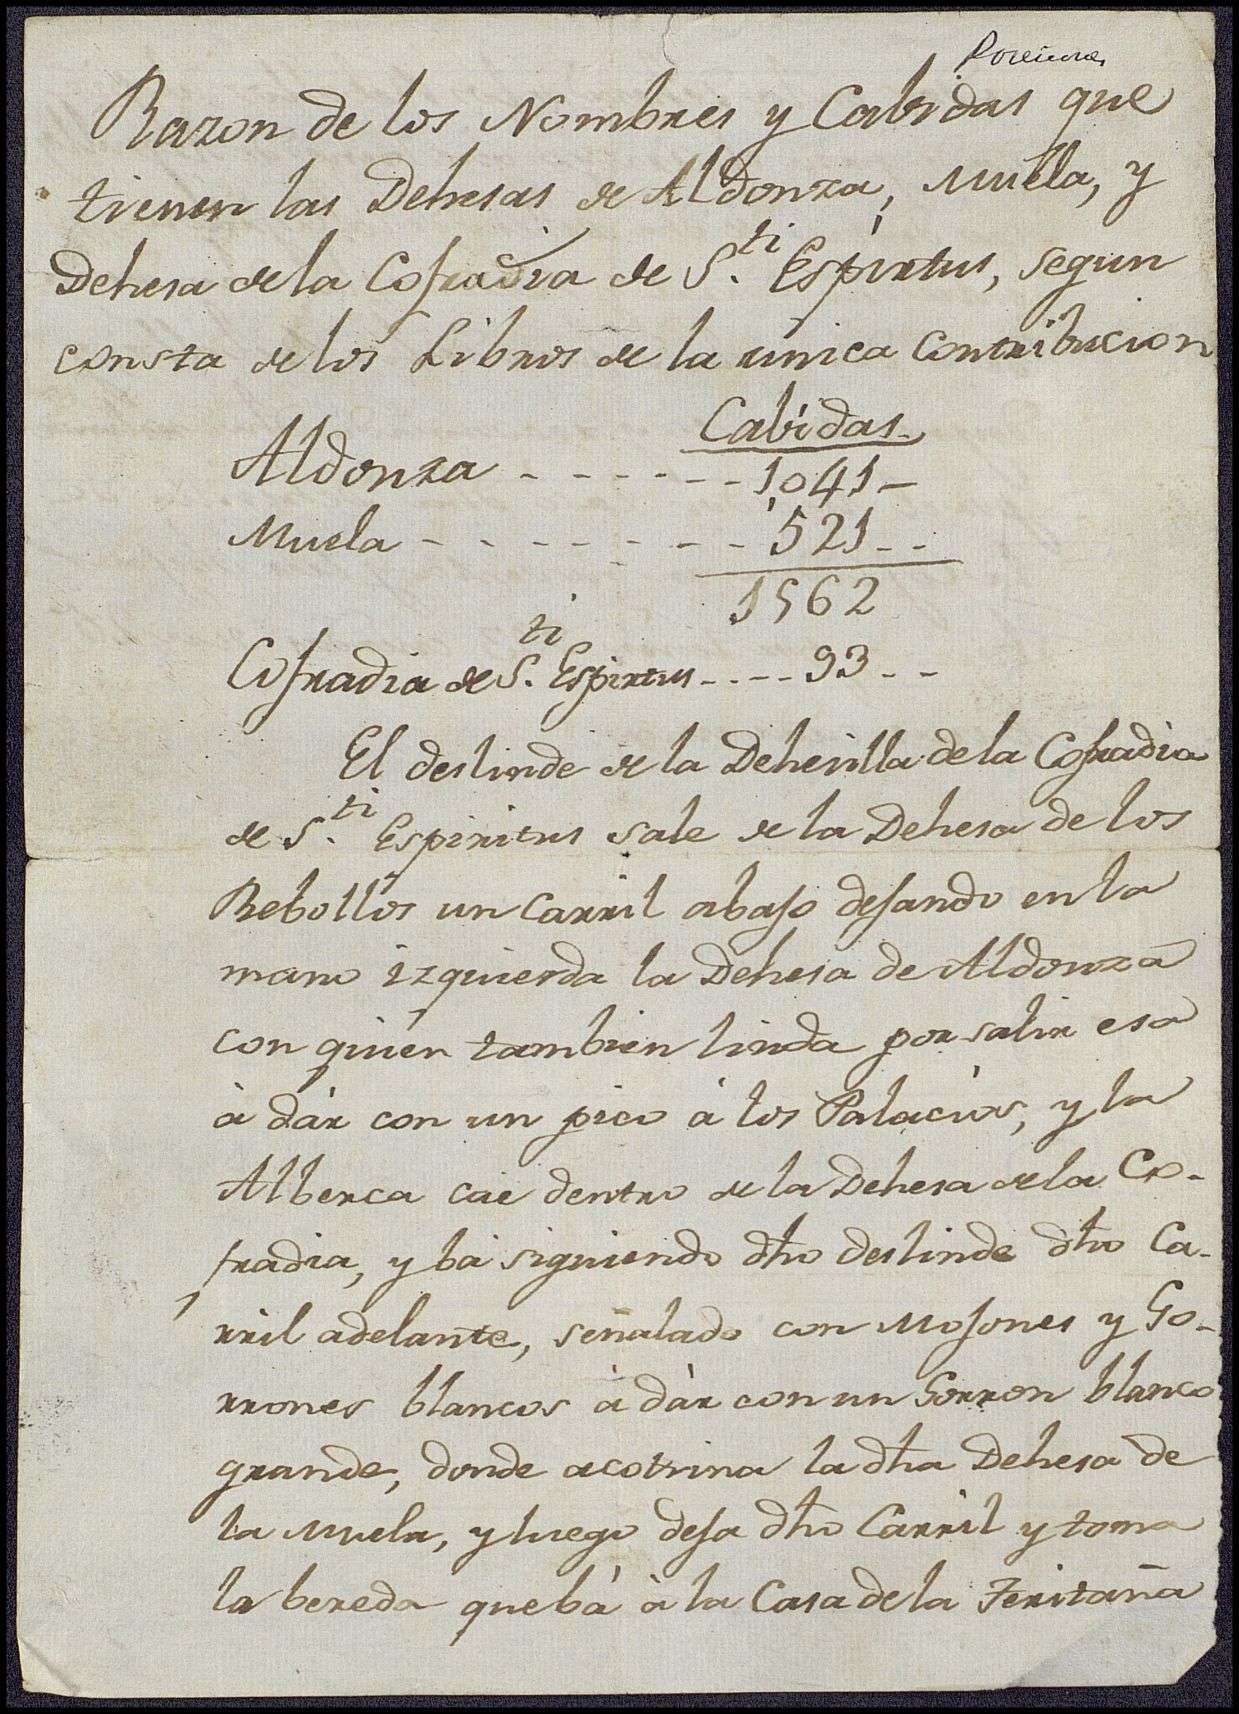 Razon de los Nombres y Cabidas que
tienen las Dehesas de Aldonza, Muela, y
Dehesa de la Cofradia de S.ti Espiritus, segun
consta de los Libros de la unica Contribucion
Cabidas
Aldonza - - - - - - 1041 -
Muela - - - - - - - 521 - -
1562
Cofradia de S.ti Espiritus - - - - 93 - -
El deslinde de la Dehesilla de la Cofradia
de S.ti Espiritus sale de la Dehesa de los
Rebollos un Carril abajo dejando en la
mano izquierda la Dehesa de Aldonza
con quien tambien linda por salir esa
à dár con un pico á los Palacios, y la
Alberca cae dentro de la Dehesa de la Co-
fradia, y bá siguiendo dho deslinde dho Ca-
rril adelante, señalado con Mojones y Go-
rrones blancos à dár con un Gorron blanco
grande, donde acotrina la dha Dehesa de
la Muela, y luego deja dho Carril y toma
la bereda que bá à la Casa de la Feritaña